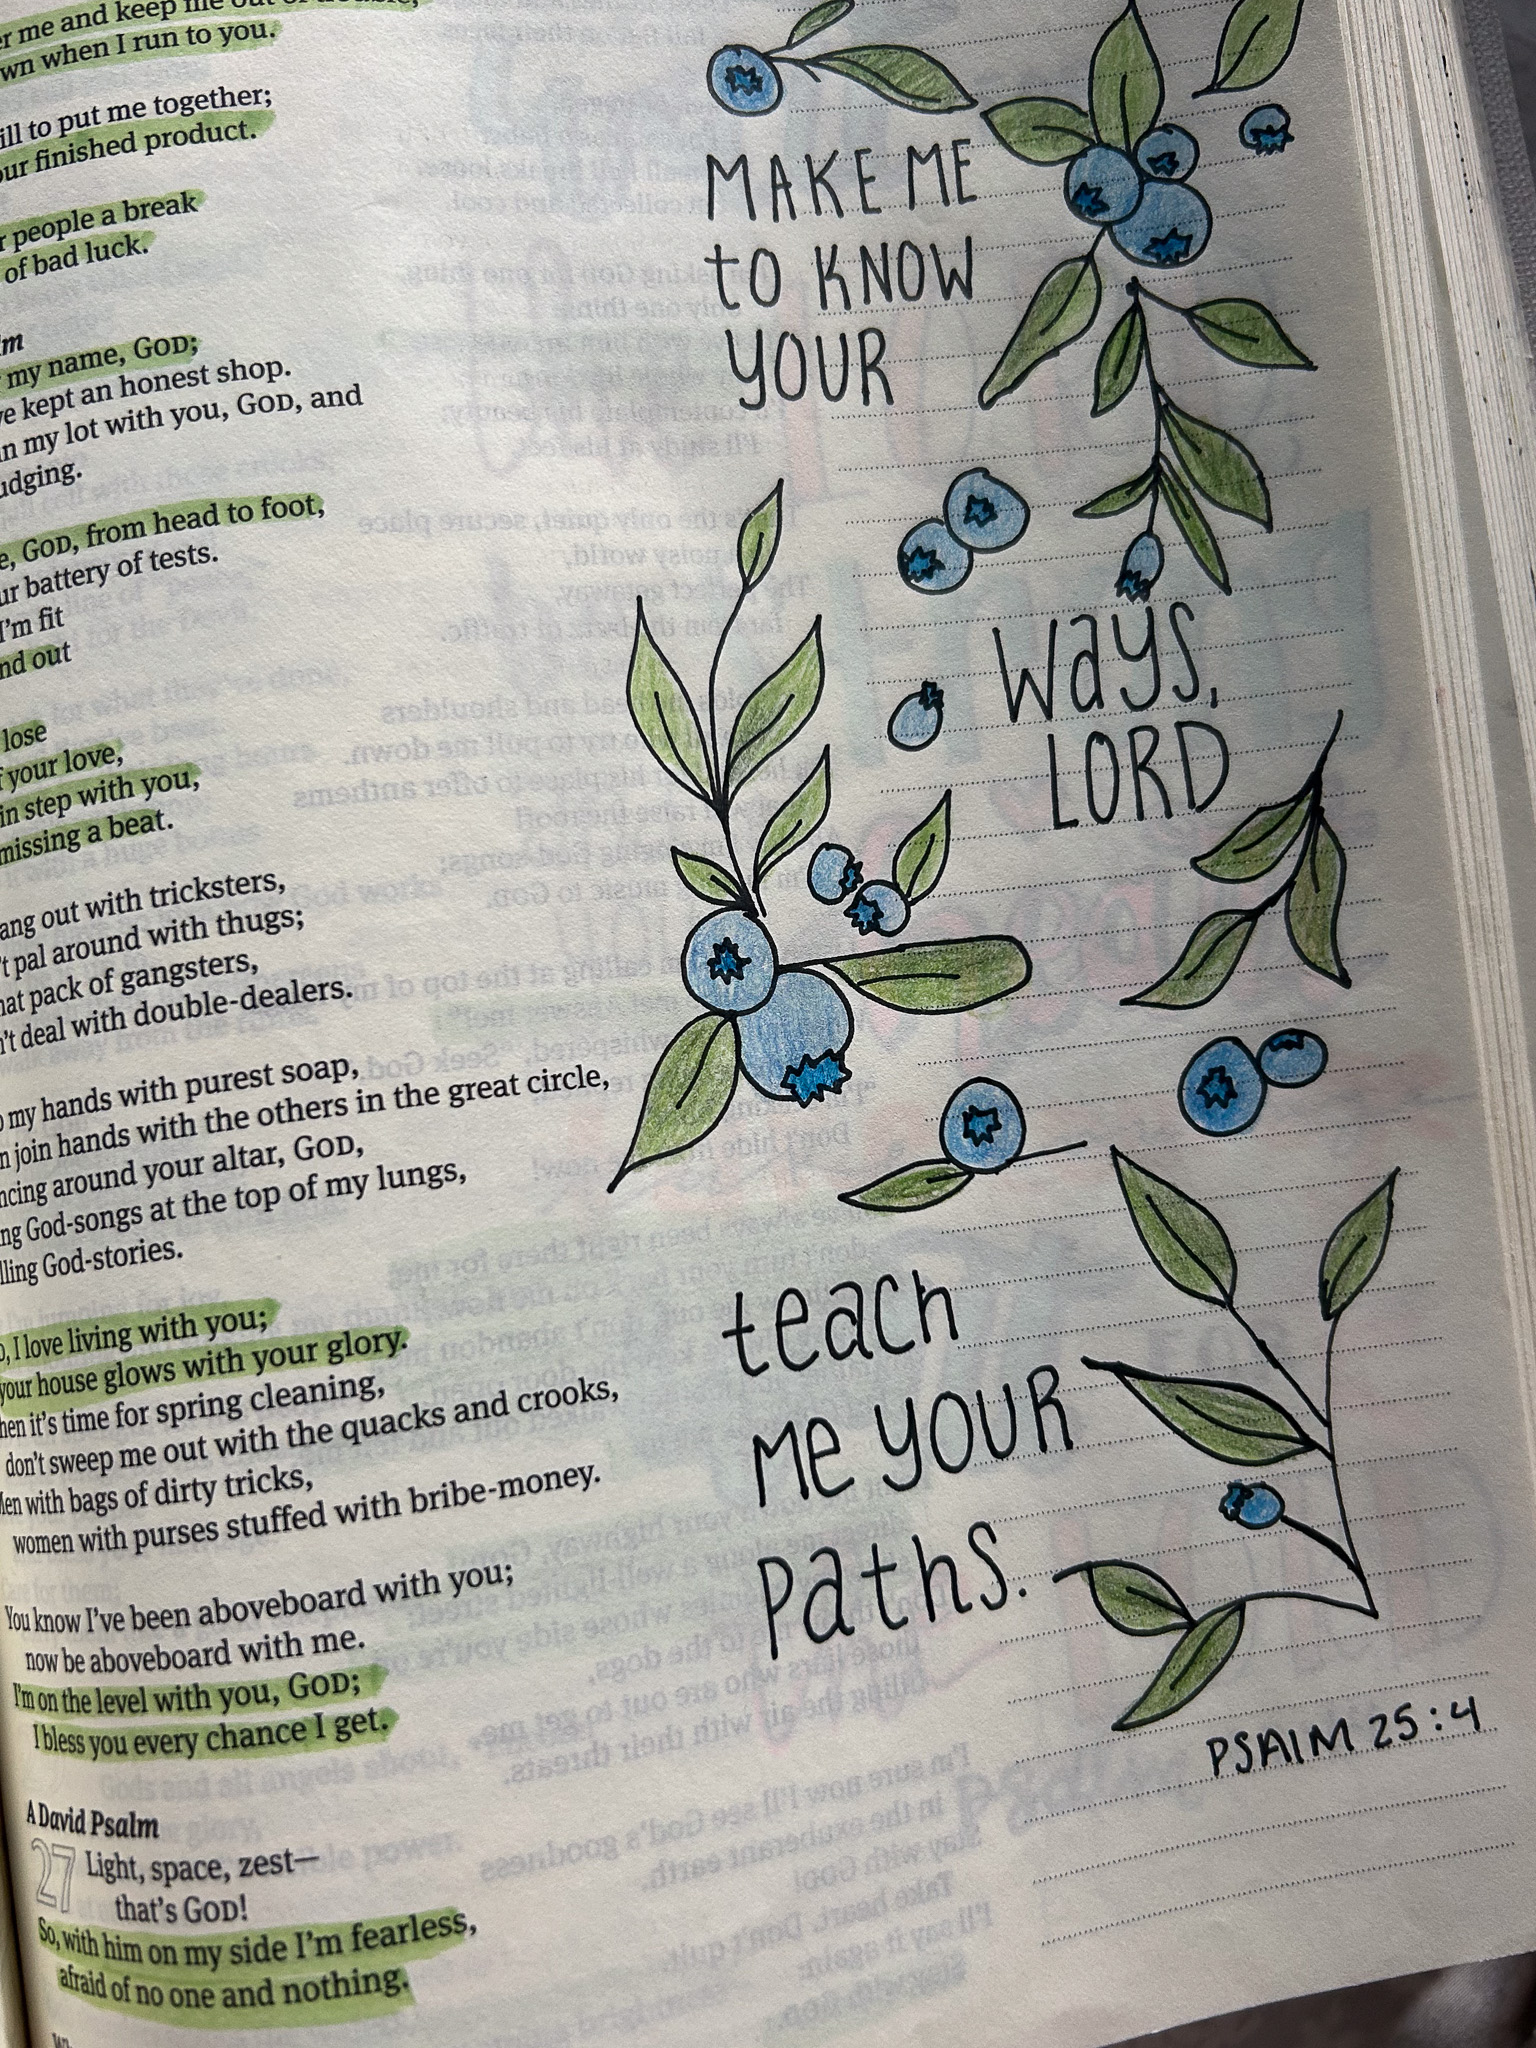 me and keep me out of trouble;
when I run to you.
to put me together;
finished product.
people a break
of bad luck.
my name, GOD;
kept an honest shop.
my lot with you, GOD, and
GOD, from head to foot,
battery of tests.
I'm fit
out
lose
your love,
in step with you,
missing a beat.
out with tricksters,
pal around with thugs;
pack of gangsters,
deal with double-dealers.
my hands with purest soap,
join hands with the others in the great circle,
around your altar, GOD,
God-songs at the top of my lungs,
God-stories.
I love living with you;
your house glows with your glory.
it's time for spring cleaning,
don't sweep me out with the quacks and crooks,
with bags of dirty tricks,
women with purses stuffed with bribe-money.
You know I've been aboveboard with you;
now be aboveboard with me.
I'm on the level with you, GOD;
I bless you every chance I get.
A David Psalm
27 Light, space, zest—
that's GOD!
So, with him on my side I'm fearless,
afraid of no one and nothing.
MAKE ME
to KNOW
YOUR
ways,
LORD
teach
Me YOUR
Paths.
PSAlM 25:4